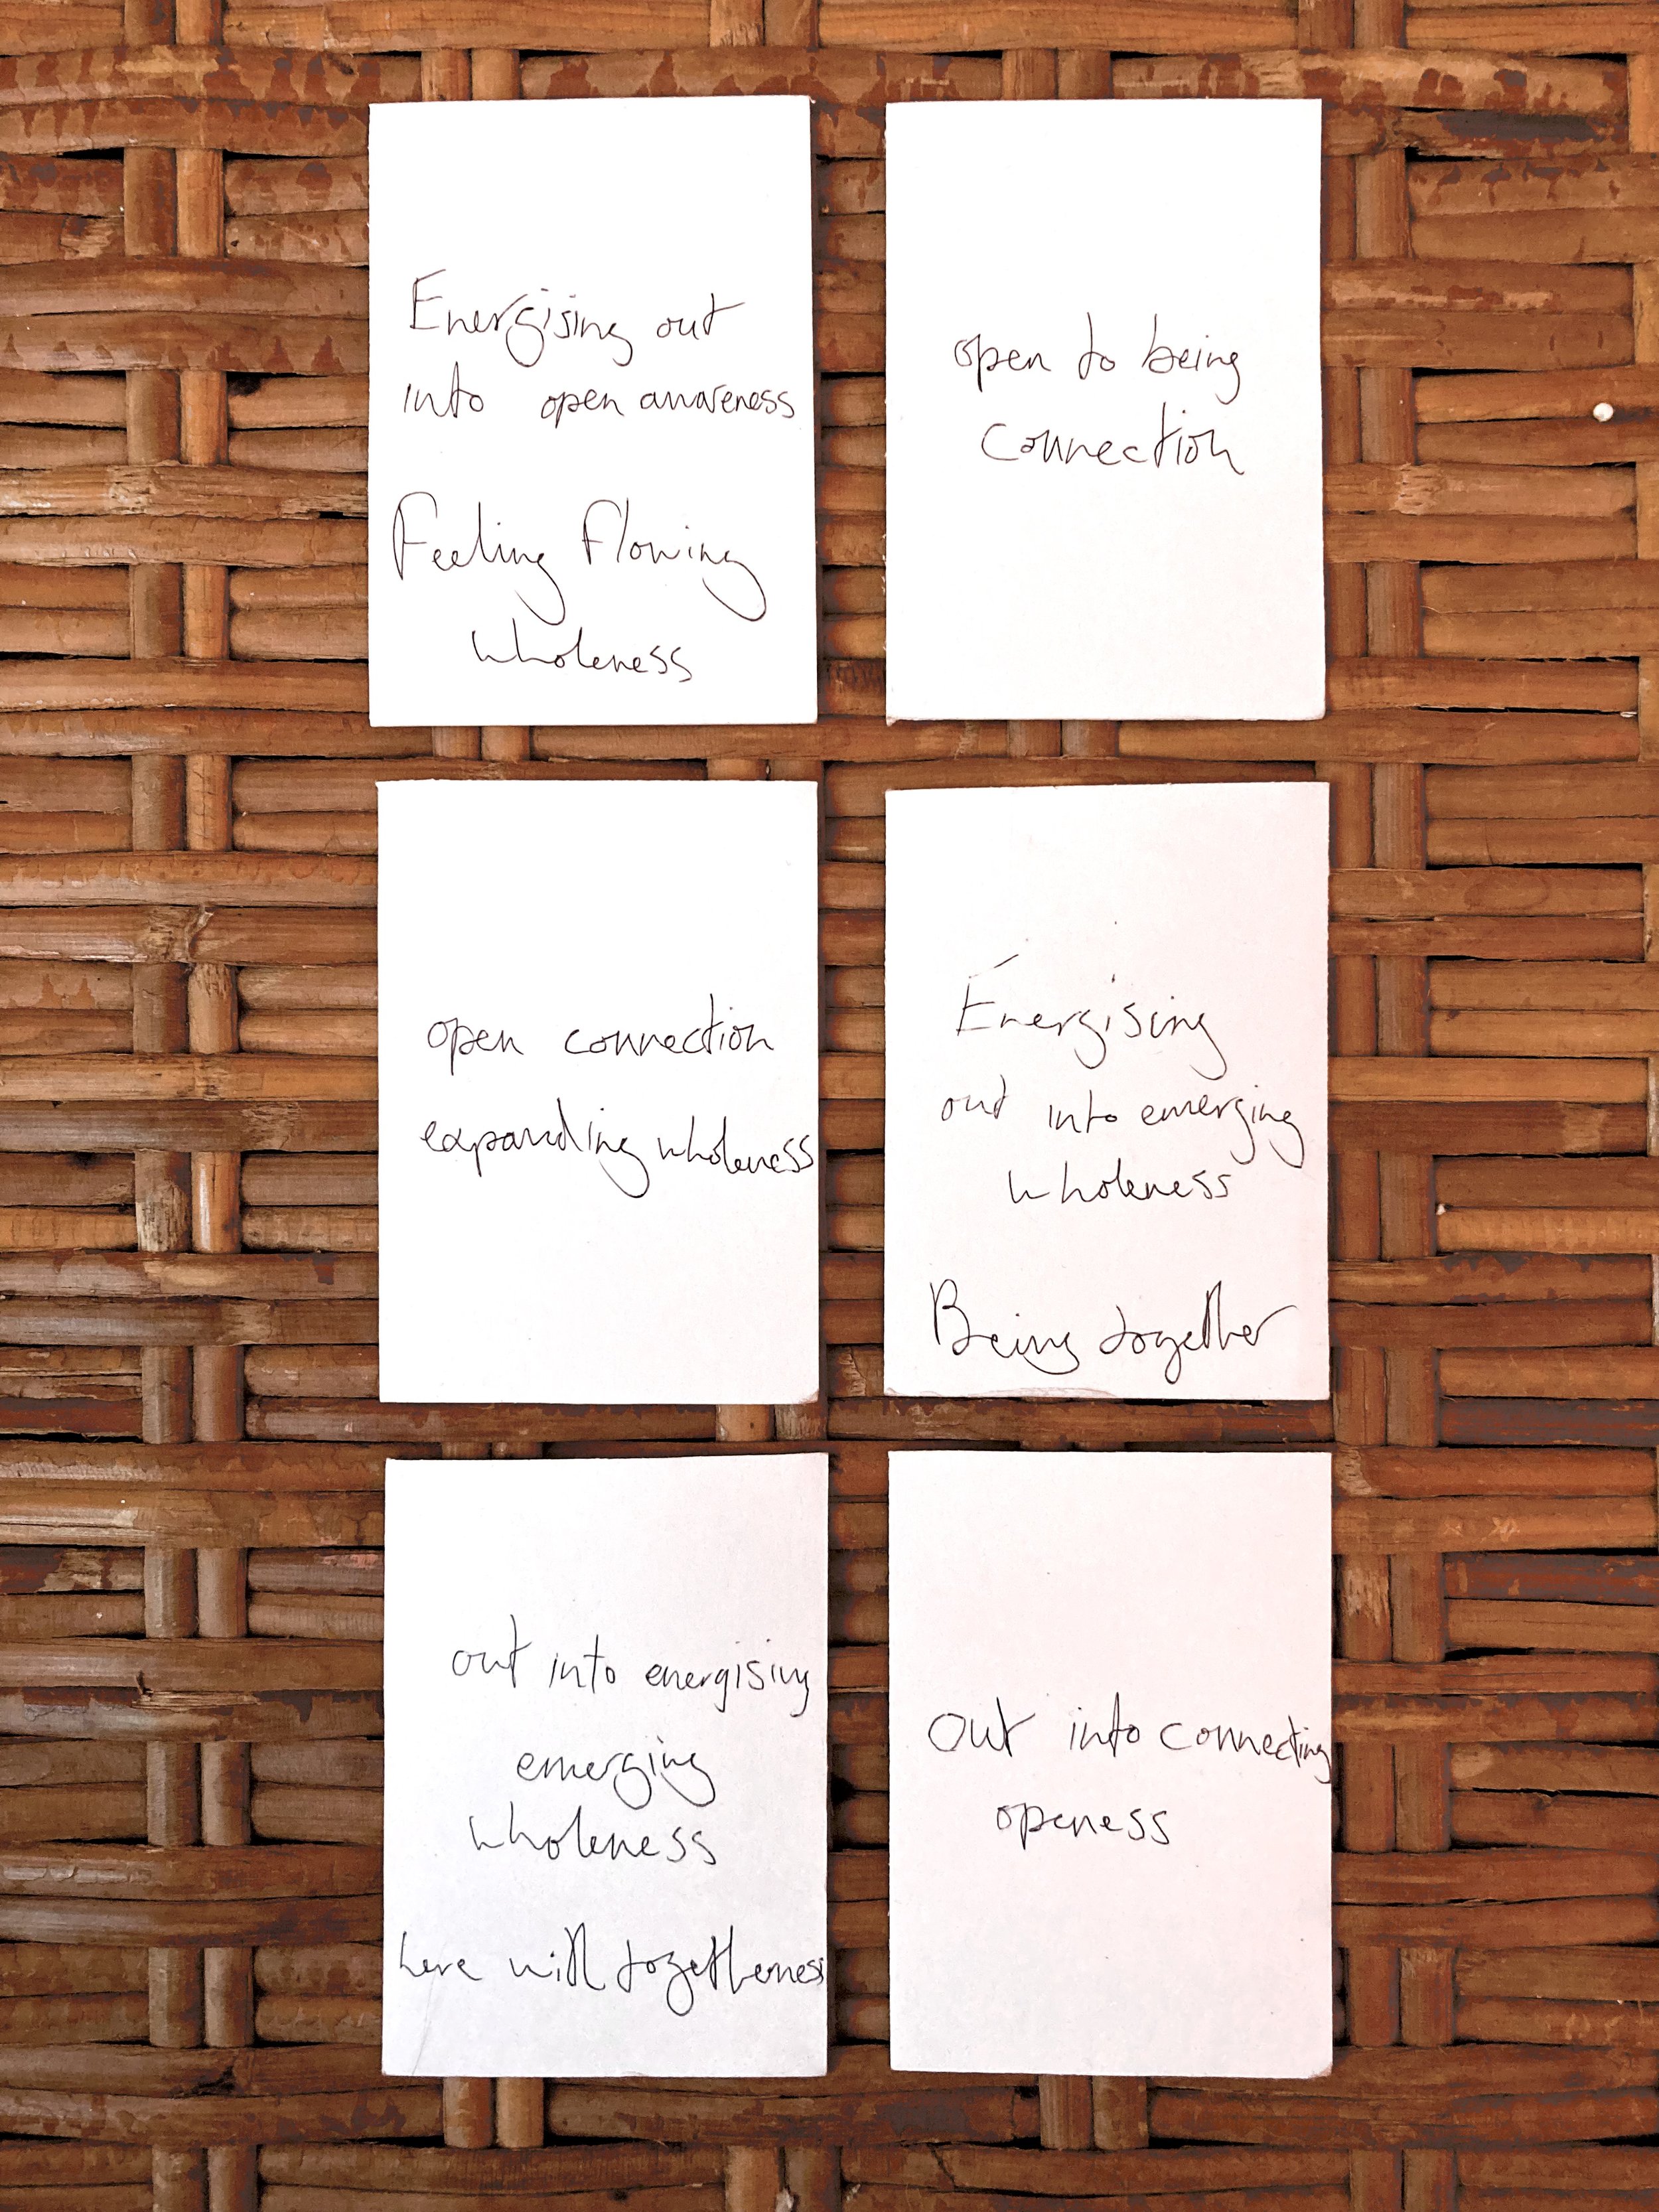 Energising out
into open awareness
Feeling Flowing
wholeness
open to being
connection
open connection
expanding wholeness
Energising
out into emerging
wholeness
Being together
out into energising
emerging
wholeness
here with togetherness
Out into connecting
openess